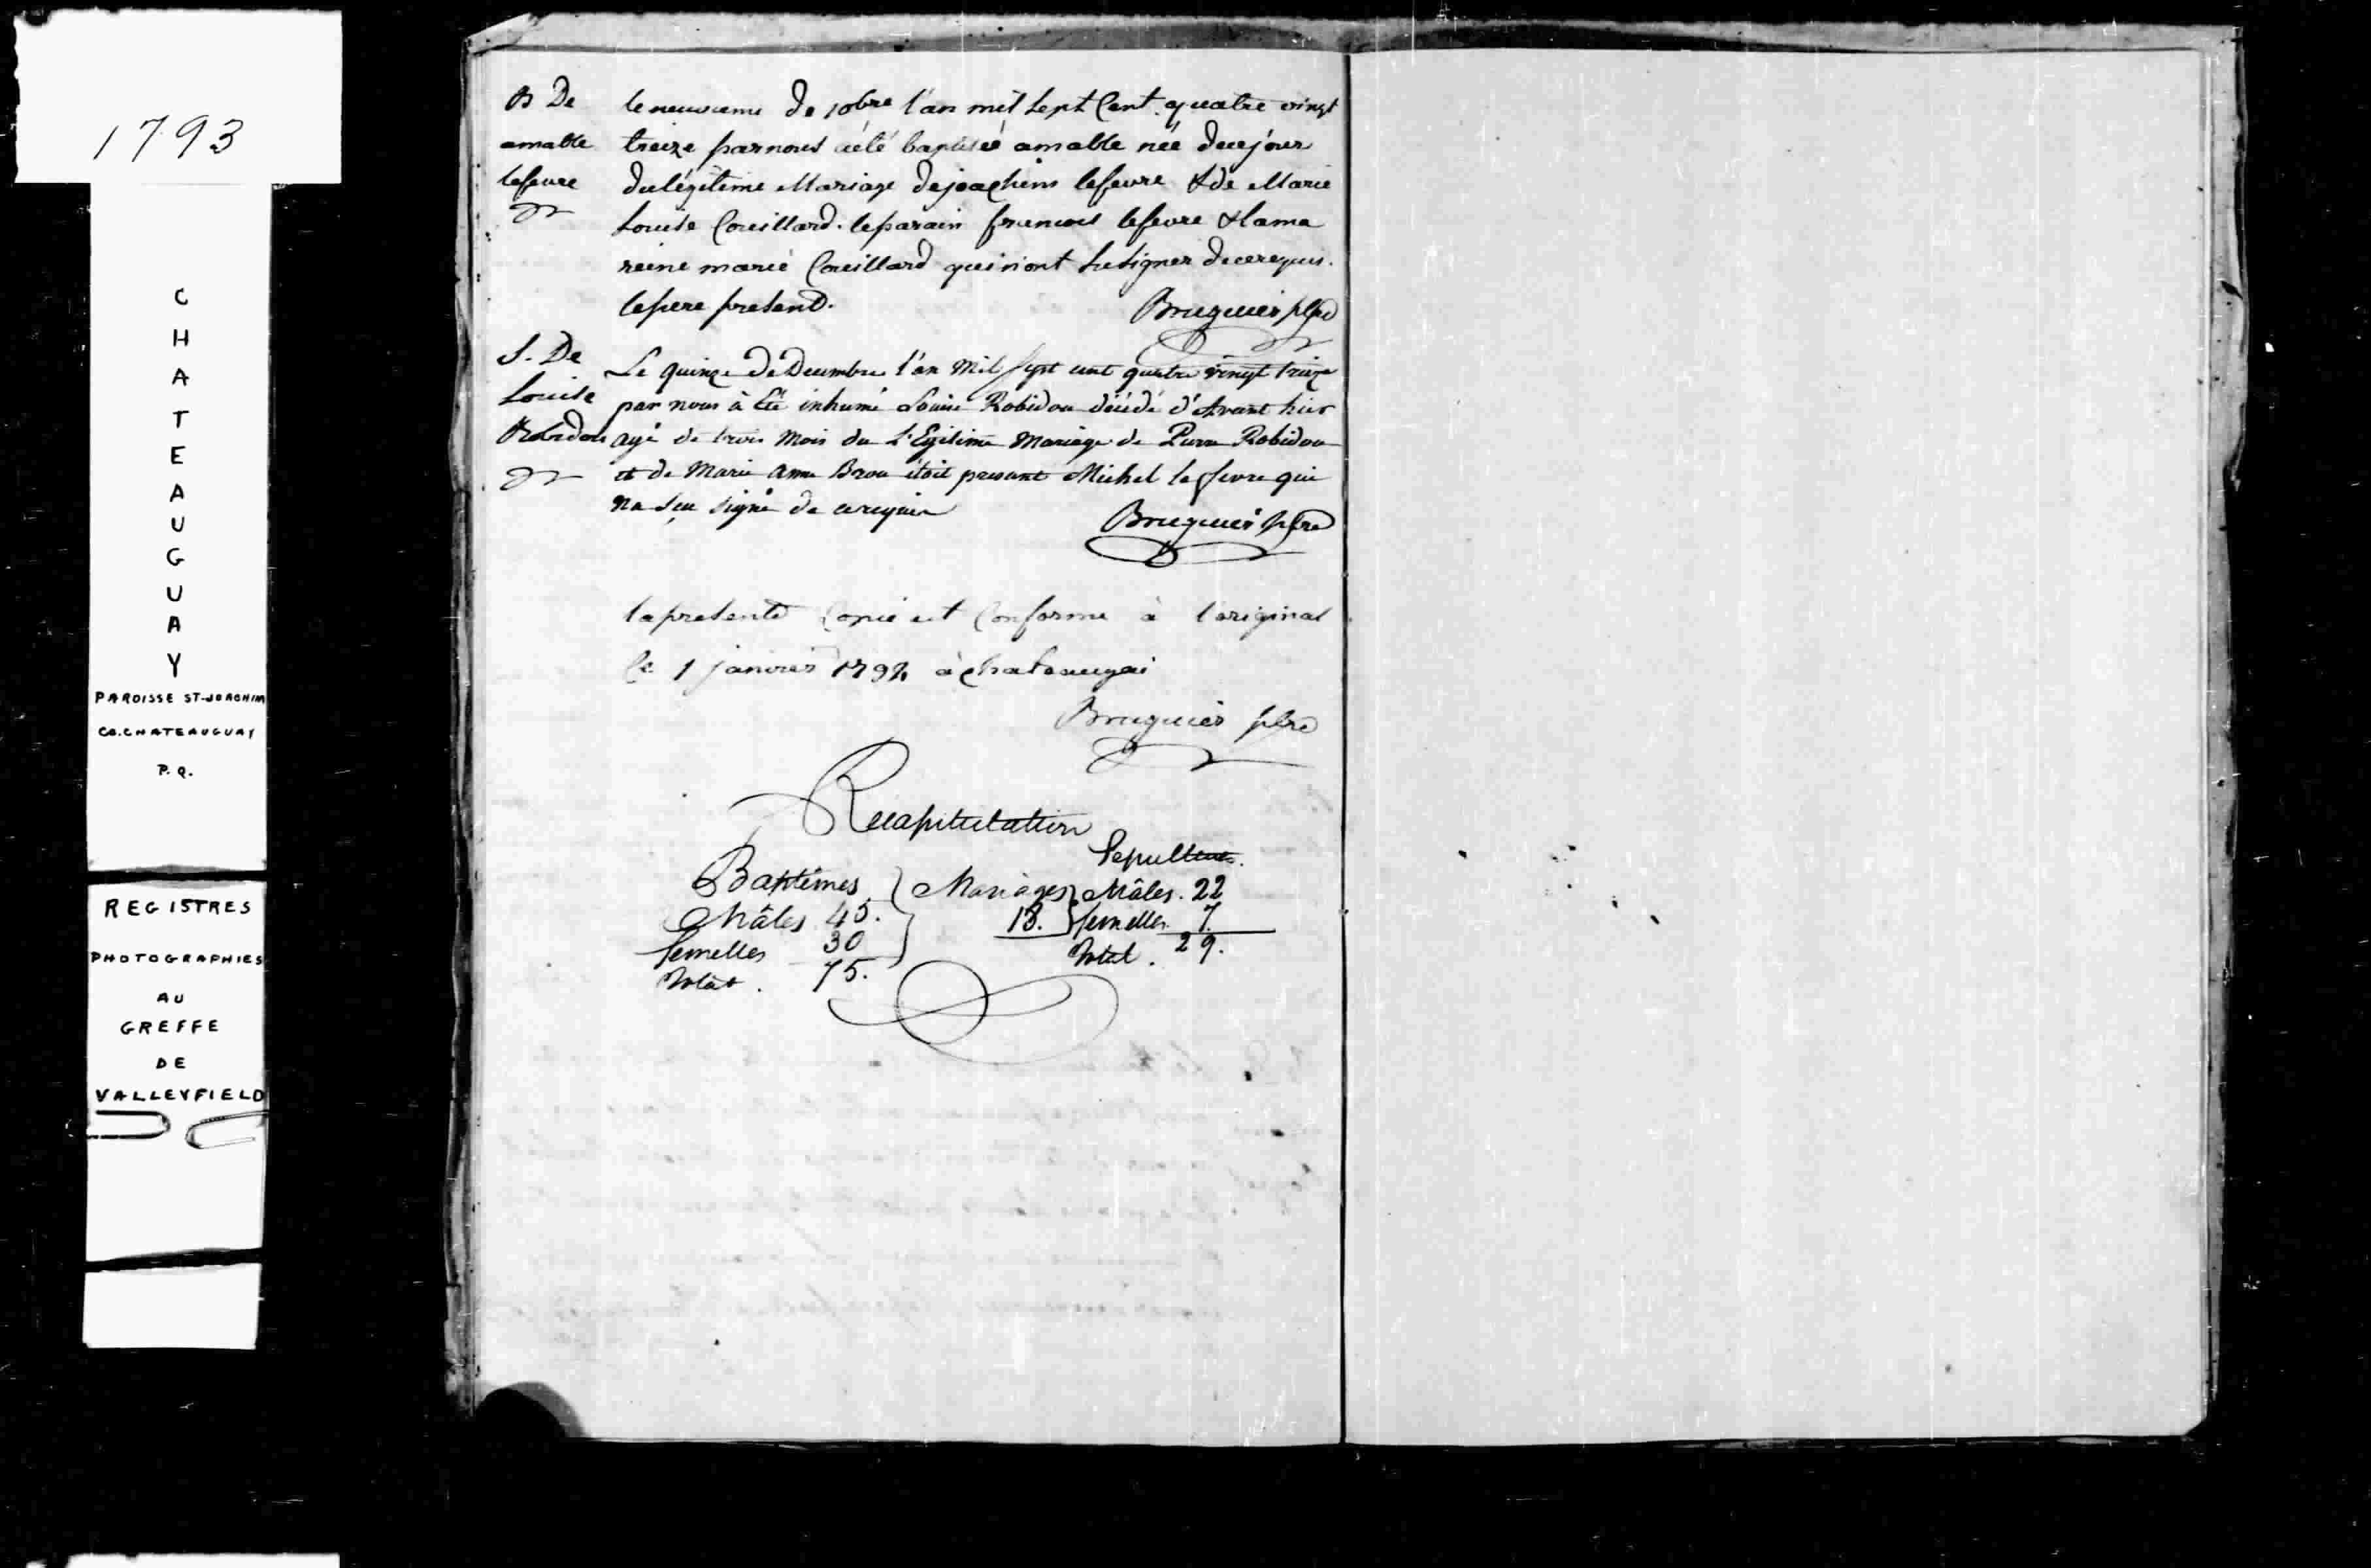 1793
CHATEAUGUAY
PAROISSE ST-JOACHIM
CO. CHATEAUGUAY
P.Q.
REGISTRES
PHOTOGRAPHIES
AU
GREFFE
DE
VALLEYFIELD
B De
amable
lefevre
le neuvieme de 10bre l'an mil Sept Cent quatre vingt
treize par nous a été baptisé amable née de ce jour
du légitime Mariage de joachim lefevre & de Marie
Louise Couillard. le parain francois lefevre & la ma
reine marie Couillard qui n'ont Su Signer de ce requis.
le pere present.
Bruguier ptre
S. De
Louise
Robidou
Le quinze de Decembre l'an Mil Sept cent quatre vingt treize
par nous à été inhumé Louise Robidou décédé d'Avant hier
agé de trois Mois du L'Egitime Mariage de Pierre Robidou
et de Marie Anne Brou étoit presant Michel lefevre qui
na Seu signé de ce requis
Bruguier ptre
la presente Copie est Conforme à l'original
le 1 janvier 1794 à chateaugai
Bruguier ptre
Recapitulation
Baptêmes
Mâles 45.
femelles 30
Total. 75.
Mariages
13.
Sepultures.
Mâles. 22
femelles 7.
Total. 29.